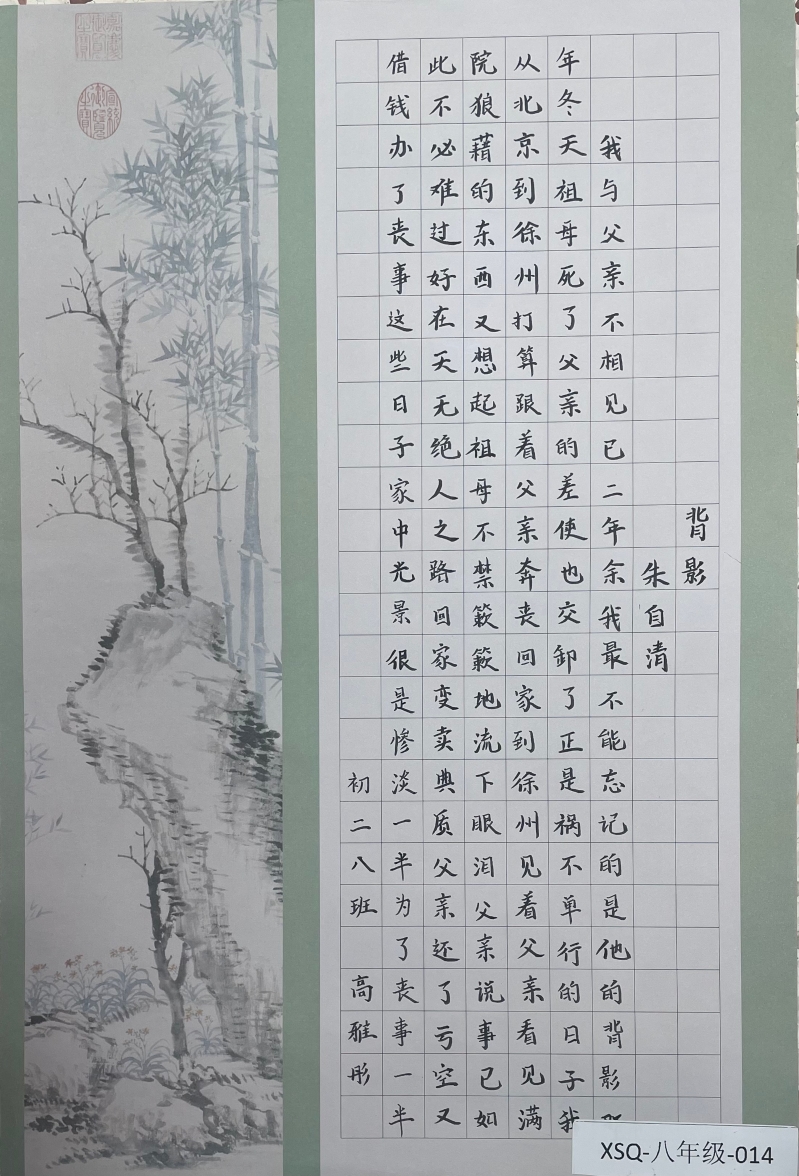 背影
朱自清
我与父亲不相见已二年余我最不能忘记的是他的背影
年冬天祖母死了父亲的差使也交卸了正是祸不单行的日子我
从北京到徐州打算跟着父亲奔丧回家到徐州见着父亲看见满
院狼藉的东西又想起祖母不禁簌簌地流下眼泪父亲说事已如
此不必难过好在天无绝人之路回家变卖典质父亲还了亏空又
借钱办了丧事这些日子家中光景很是惨淡一半为了丧事一半
初二八班 高雅彤
XSQ-八年级-014